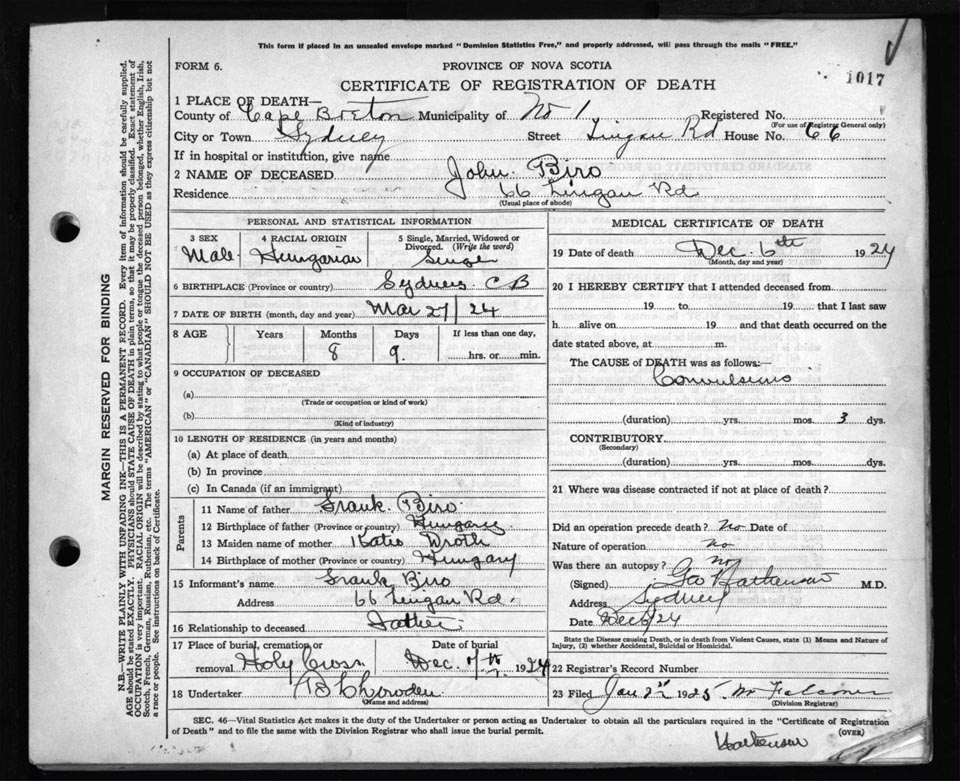 This form if placed in an unsealed envelope marked "Dominion Statistics Free," and properly addressed, will pass through the mails "FREE."
FORM 6.
PROVINCE OF NOVA SCOTIA
1017
CERTIFICATE OF REGISTRATION OF DEATH
1 PLACE OF DEATH—
County of Cape Breton Municipality of No 1 Registered No.
(For use of Registrar General only)
City or Town Sydney Street Lingan Rd House No. 66
If in hospital or institution, give name
2 NAME OF DECEASED John Biro
Residence 66 Lingan Rd
(Usual place of abode)
PERSONAL AND STATISTICAL INFORMATION
3 SEX Male
4 RACIAL ORIGIN Hungarian
5 Single, Married, Widowed or Divorced. (Write the word) Single
6 BIRTHPLACE (Province or country) Sydney C B
7 DATE OF BIRTH (month, day and year) Mar 27/24
8 AGE Years Months Days If less than one day,
8 9 hrs. or min.
9 OCCUPATION OF DECEASED
(a)
(Trade or occupation or kind of work)
(b)
(Kind of industry)
10 LENGTH OF RESIDENCE (in years and months)
(a) At place of death
(b) In province
(c) In Canada (if an immigrant)
Parents
11 Name of father Frank Biro
12 Birthplace of father (Province or country) Hungary
13 Maiden name of mother Katie
14 Birthplace of mother (Province or country) Hungary
15 Informant's name Frank Biro
Address 66 Lingan Rd.
16 Relationship to deceased Father
17 Place of burial, cremation or removal Holy Cross
Date of burial Dec. 7th 1924
18 Undertaker
(Name and address)
MEDICAL CERTIFICATE OF DEATH
19 Date of death Dec. 6th 1924
(Month, day and year)
20 I HEREBY CERTIFY that I attended deceased from
19 to 19 that I last saw
h alive on 19 and that death occurred on the
date stated above, at m.
The CAUSE of DEATH was as follows:—
Convulsions
(duration) yrs. mos. 3 dys.
CONTRIBUTORY
(Secondary)
(duration) yrs. mos. dys.
21 Where was disease contracted if not at place of death?
Did an operation precede death? No Date of
Nature of operation no
Was there an autopsy? no
(Signed) M.D.
Address Sydney
Date Dec 6/24
State the Disease causing Death, or in death from Violent Causes, state (1) Means and Nature of Injury, (2) whether Accidental, Suicidal or Homicidal.
22 Registrar's Record Number
23 Filed Jan 2nd 1925
(Division Registrar)
SEC. 46—Vital Statistics Act makes it the duty of the Undertaker or person acting as Undertaker to obtain all the particulars required in the "Certificate of Registration
of Death" and to file the same with the Division Registrar who shall issue the burial permit.
(OVER)
MARGIN RESERVED FOR BINDING
N.B.—WRITE PLAINLY WITH UNFADING INK—THIS IS A PERMANENT RECORD. Every item of information should be carefully supplied.
AGE should be stated EXACTLY. PHYSICIANS should STATE CAUSE OF DEATH in plain terms, so that it may be properly classified. Exact statement of
OCCUPATION is very important. RACIAL ORIGIN will be described by stating to what people or tongue the deceased person belonged, whether English, Irish,
Scotch, French, German, Russian, Ruthenian, etc. The terms "AMERICAN" or "CANADIAN" SHOULD NOT BE USED as they express citizenship but not
a race or people. See instructions on back of Certificate.